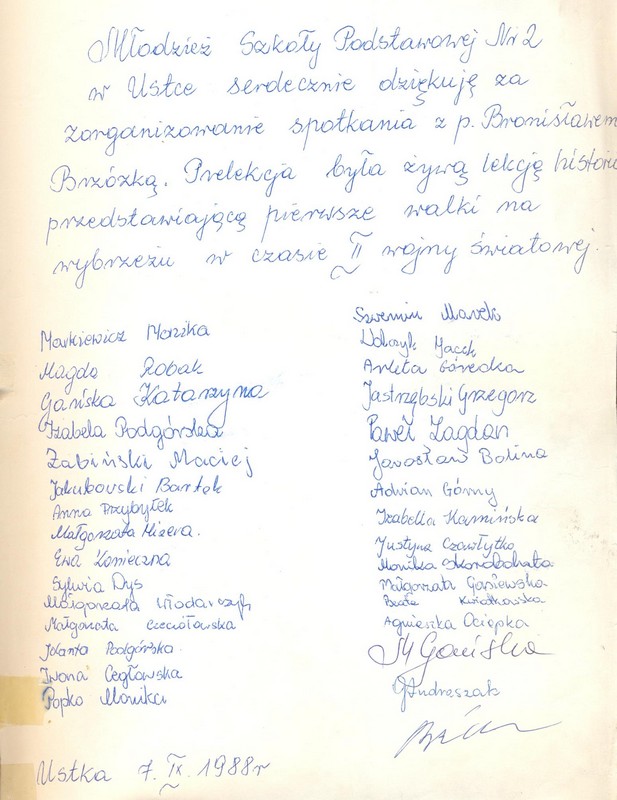 Młodzież Szkoły Podstawowej Nr 2
w Ustce serdecznie dziękują za
zorganizowanie spotkania z p. Bronisławem
Brzózką. Prelekcja była żywą lekcją histori
przedstawiającą pierwsze walki na
wybrzeżu w czasie II wojny światowej.
Markiewicz Monika
Magda Robak
Gańska Katarzyna
Izabela Podgórska
Żabiński Maciej
Jakubowski Bartek
Anna Przybyłek
Małgorzata Mizera.
Ewa Konieczna
Sylwia Dys
Małgorzata Włodarczyk
Małgorzata
Jolanta Podgórska
Iwona Cegłowska
Popko Monika
Marek
Jacek
Arleta Górecka
Jastrzębski Grzegorz
Paweł Zagdan
Jarosław Balina
Adrian Górny
Izabella Kamińska
Justyna Czawłytko
Monika Skorobohata
Małgorzata Gąsiewska
Beata Kwiatkowska
Agnieszka Ociepka
M Gańska
Andraszak
Ustka 7. IX. 1988r